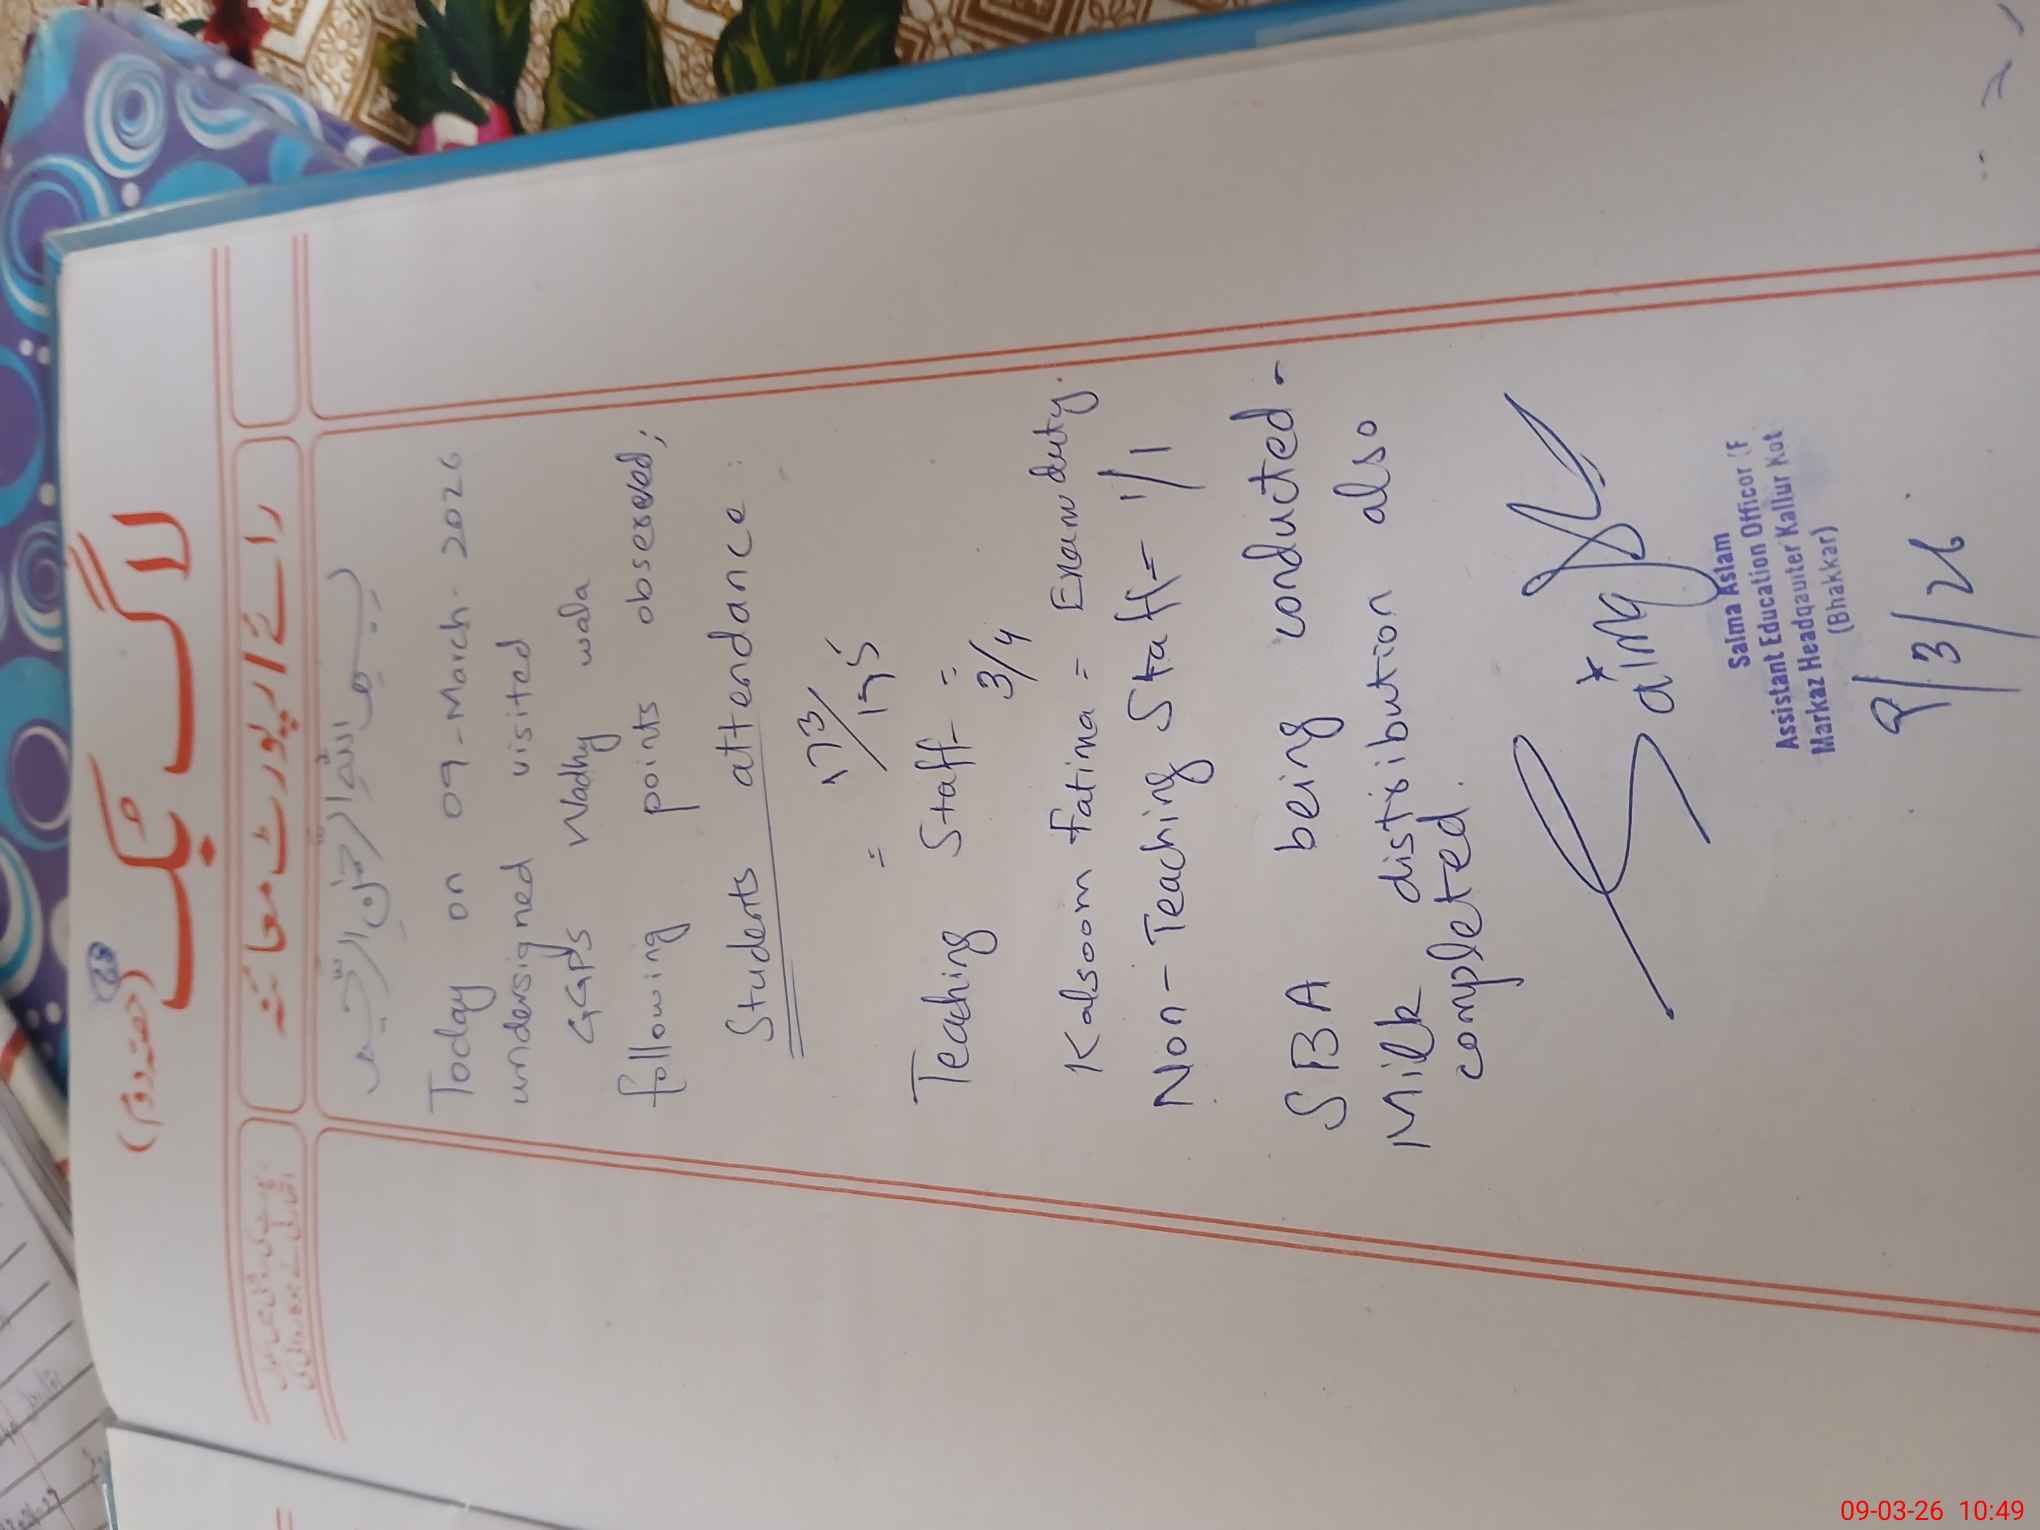 (حصّہ دوم)
لاگ بک
رائے / رپورٹ معائنہ
بسم اللہ الرحمٰن الرحیم
Today on 09-March-2026
undersigned visited
GGPS Wadhy wala
following points observed;
Students attendance:
= 173/175
Teaching Staff =
3/4
Kalsoom fatima = Exam duty.
Non-Teaching Staff = 1/1
SBA being conducted-
Milk distribution also
completed.
Salma Aslam
Assistant Education Officor (F
Markaz Headqauiter Kallur Kot
(Bhakkar)
9/3/26
09-03-26 10:49